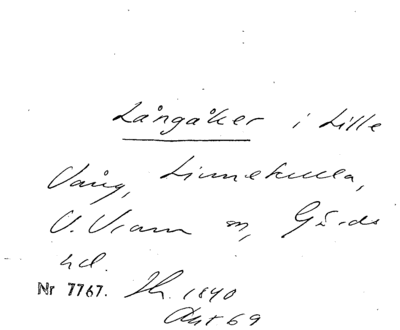 Långåker i Lille
Vång, Linnekulla,
V. Vram sn, Gärds
hd.
Nr 7767. Sk. 1840
Akt 69